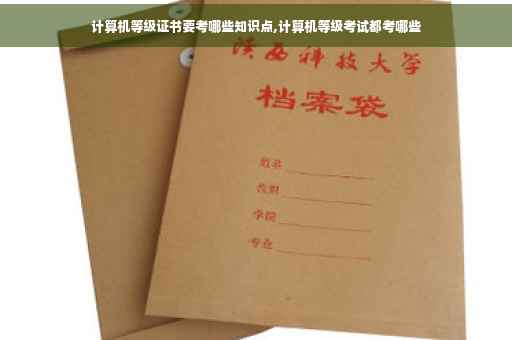 计算机等级证书要考哪些知识点,计算机等级考试都考哪些
陕西科技大学
档案袋
姓名
班级
学院
专业